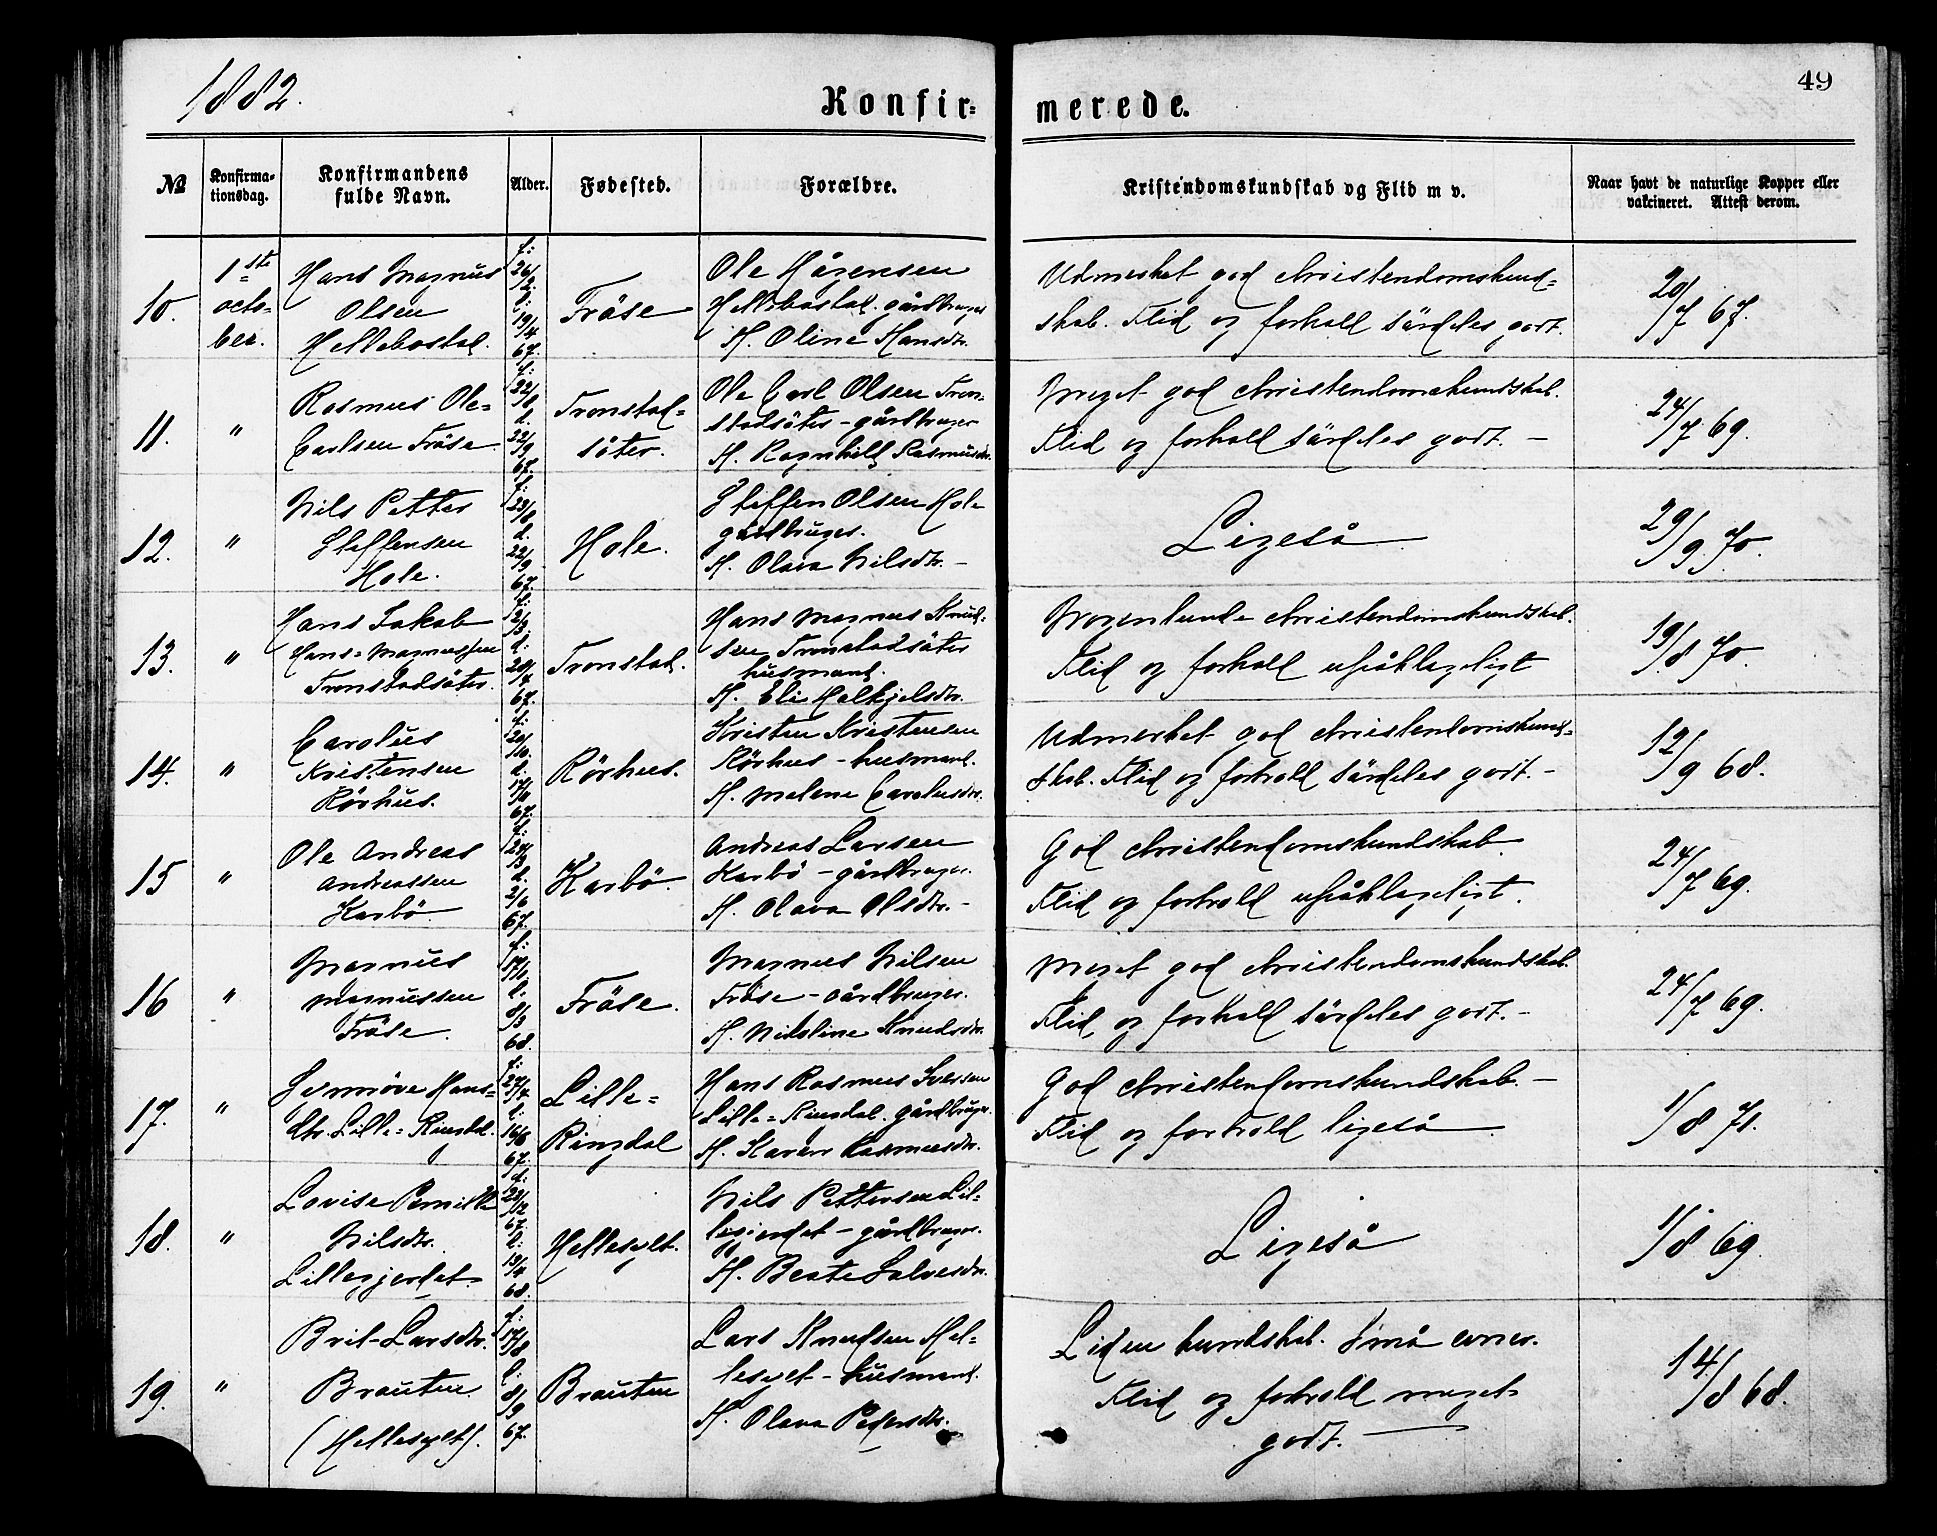 1882.
Konfir-
merede.
49
№
Konfirma-
tionsdag.
Konfirmandens
fulde Navn.
Alder.
Fødested.
Forældre.
Kristendomskundskab og Flid m v.
Naar havt de naturlige Kopper eller
vakcineret. Attest derom.
10.
1ste
octo-
ber.
Hans Magnus
Olsen
Hellebostad.
f:
26/2.
d:
19/4
67.
Fröse
Ole
Hellebostad. gårdbruger
H. Oline Hansdtr.
Udmerket god christendomskund-
skab. Flid og forhold särdeles godt.
20/7 67.
11.
"
Rasmus Ole-
Carlsen Fröse
f:
22/8
d.
22/9
67.
Tronstad-
säter.
Ole Carl Olsen Tron-
stadsäter - gårdbruger
H. Ragnhild Rasmusdtr.
Meget god christendomskundskab.
Flid og forhold särdeles godt. -
24/7 69.
12.
"
Nils Petter
Steffensen
Hole.
f:
23/8
d.
22/9
67.
Hole.
Steffen Olsen Hole
gårdbruger.
H. Olava Nilsdtr. -
Ligeså
29/9 70.
13.
"
Hans Jakob
Hans-Magnussen
Tronstadsäter.
f:
12/3
d:
28/4
67.
Tronstad.
Hans Magnus Knud-
sen Tronstadsäter
husmand.
H. Eli Helkjelsdtr.
Nogenlunde christendomskundskab.
Flid og forhold upåklageligt
19/8 70.
14.
"
Carolus
Kristensen
Rörhus.
f:
20/10
d.
67.
Rörhus.
Kristen Kristensen
Rörhus - husmand.
H. Malene Carolusdtr.
Udmerket god christendomskund-
skab. Flid og forhold särdeles godt. -
12/9 68.
15
"
Ole Andreas
Andreassen
Karbö
f:
24/3
d.
2/6
67.
Karbö.
Andreas Larsen
Karbö - gårdbruger.
H. Olava Olsdtr. -
God christendomskundskab.
Flid og forhold upåklageligt.
24/7 69.
16
"
Magnus
Magnussen
Fröse.
f:
17/1
d.
8/3
68.
Fröse.
Magnus Nilsen
Fröse - gårdbruger.
H. Nikoline Knudsdtr.
Meget god christendomskundskab.
Flid og forhold särdeles godt. -
24/7 69.
17.
"
Synnöve Hans-
dtr. Lille-Ringdal.
f:
27/4
d.
16/6
67.
Lille-
Ringdal
Hans Rasmus Iversen
Lille-Ringdal. gårdbruger.
H. Karen Rasmusdtr.
God christendomskundskab. -
Flid og forhold ligeså
1/8 71.
18.
"
Lovise Pernille
Nilsdtr.
Lillegjerdet.
f:
22/12
67.
d:
13/4
68.
Hellesylt.
Nils Pettersen Lil-
legjerdet - gårdbruger.
H. Beate Salvesdtr.
Ligeså
1/8 69.
19.
"
Brit-Larsdtr.
Brauten
(Hellesylt).
f:
17/8
d.
8/9
67.
Brauten
Lars Knudsen Hel-
lesylt - husmand.
H. Olava Pedersdtr.
Liden kundskab. Små evner.
Flid og forhold meget
godt.
14/8 68.